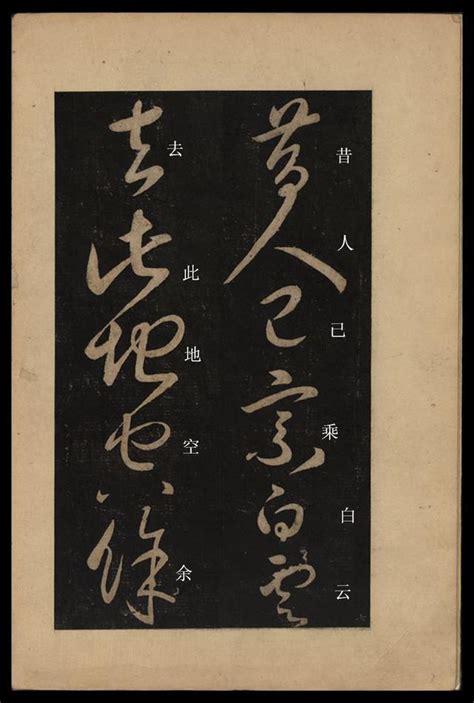 昔人已乘白雲
昔人己乘白云
去此地空餘
去此地空余